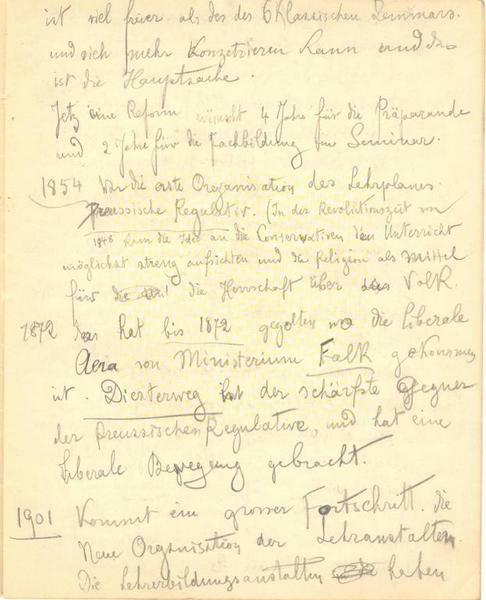 ist viel freier als des des 6 Klassischen Seminars.
und sich mehr Konzetrieren kann und das
ist die Hauptsache.
Jetz eine Reform wünscht 4 Jahre für die Präparande
und 2 Jahre für die Fachbildung im Seminar.
1854 War die erste Oreganisation des Lehrplanes.
Preussische Regulativ. (In der Revolutionszeit von
1848 kam die Idee an die Conservativen den Unterricht
möglichst streng aufsichten und die Religion als Mittel
für die Herrschaft über das Volk.
1872 das hat bis 1872 gegolten wo die liberale
Aera von Ministerium Falk gekommen
ist. Diesterweg ist der schärfste Gegner
der preussischen Regulative, und hat eine
liberale Bewegung gebracht.
1901 Kommt ein grosser Fortschritt. die
Neue Organisation der Lehranstalten.
Die Lehrerbildungsanstalten haben